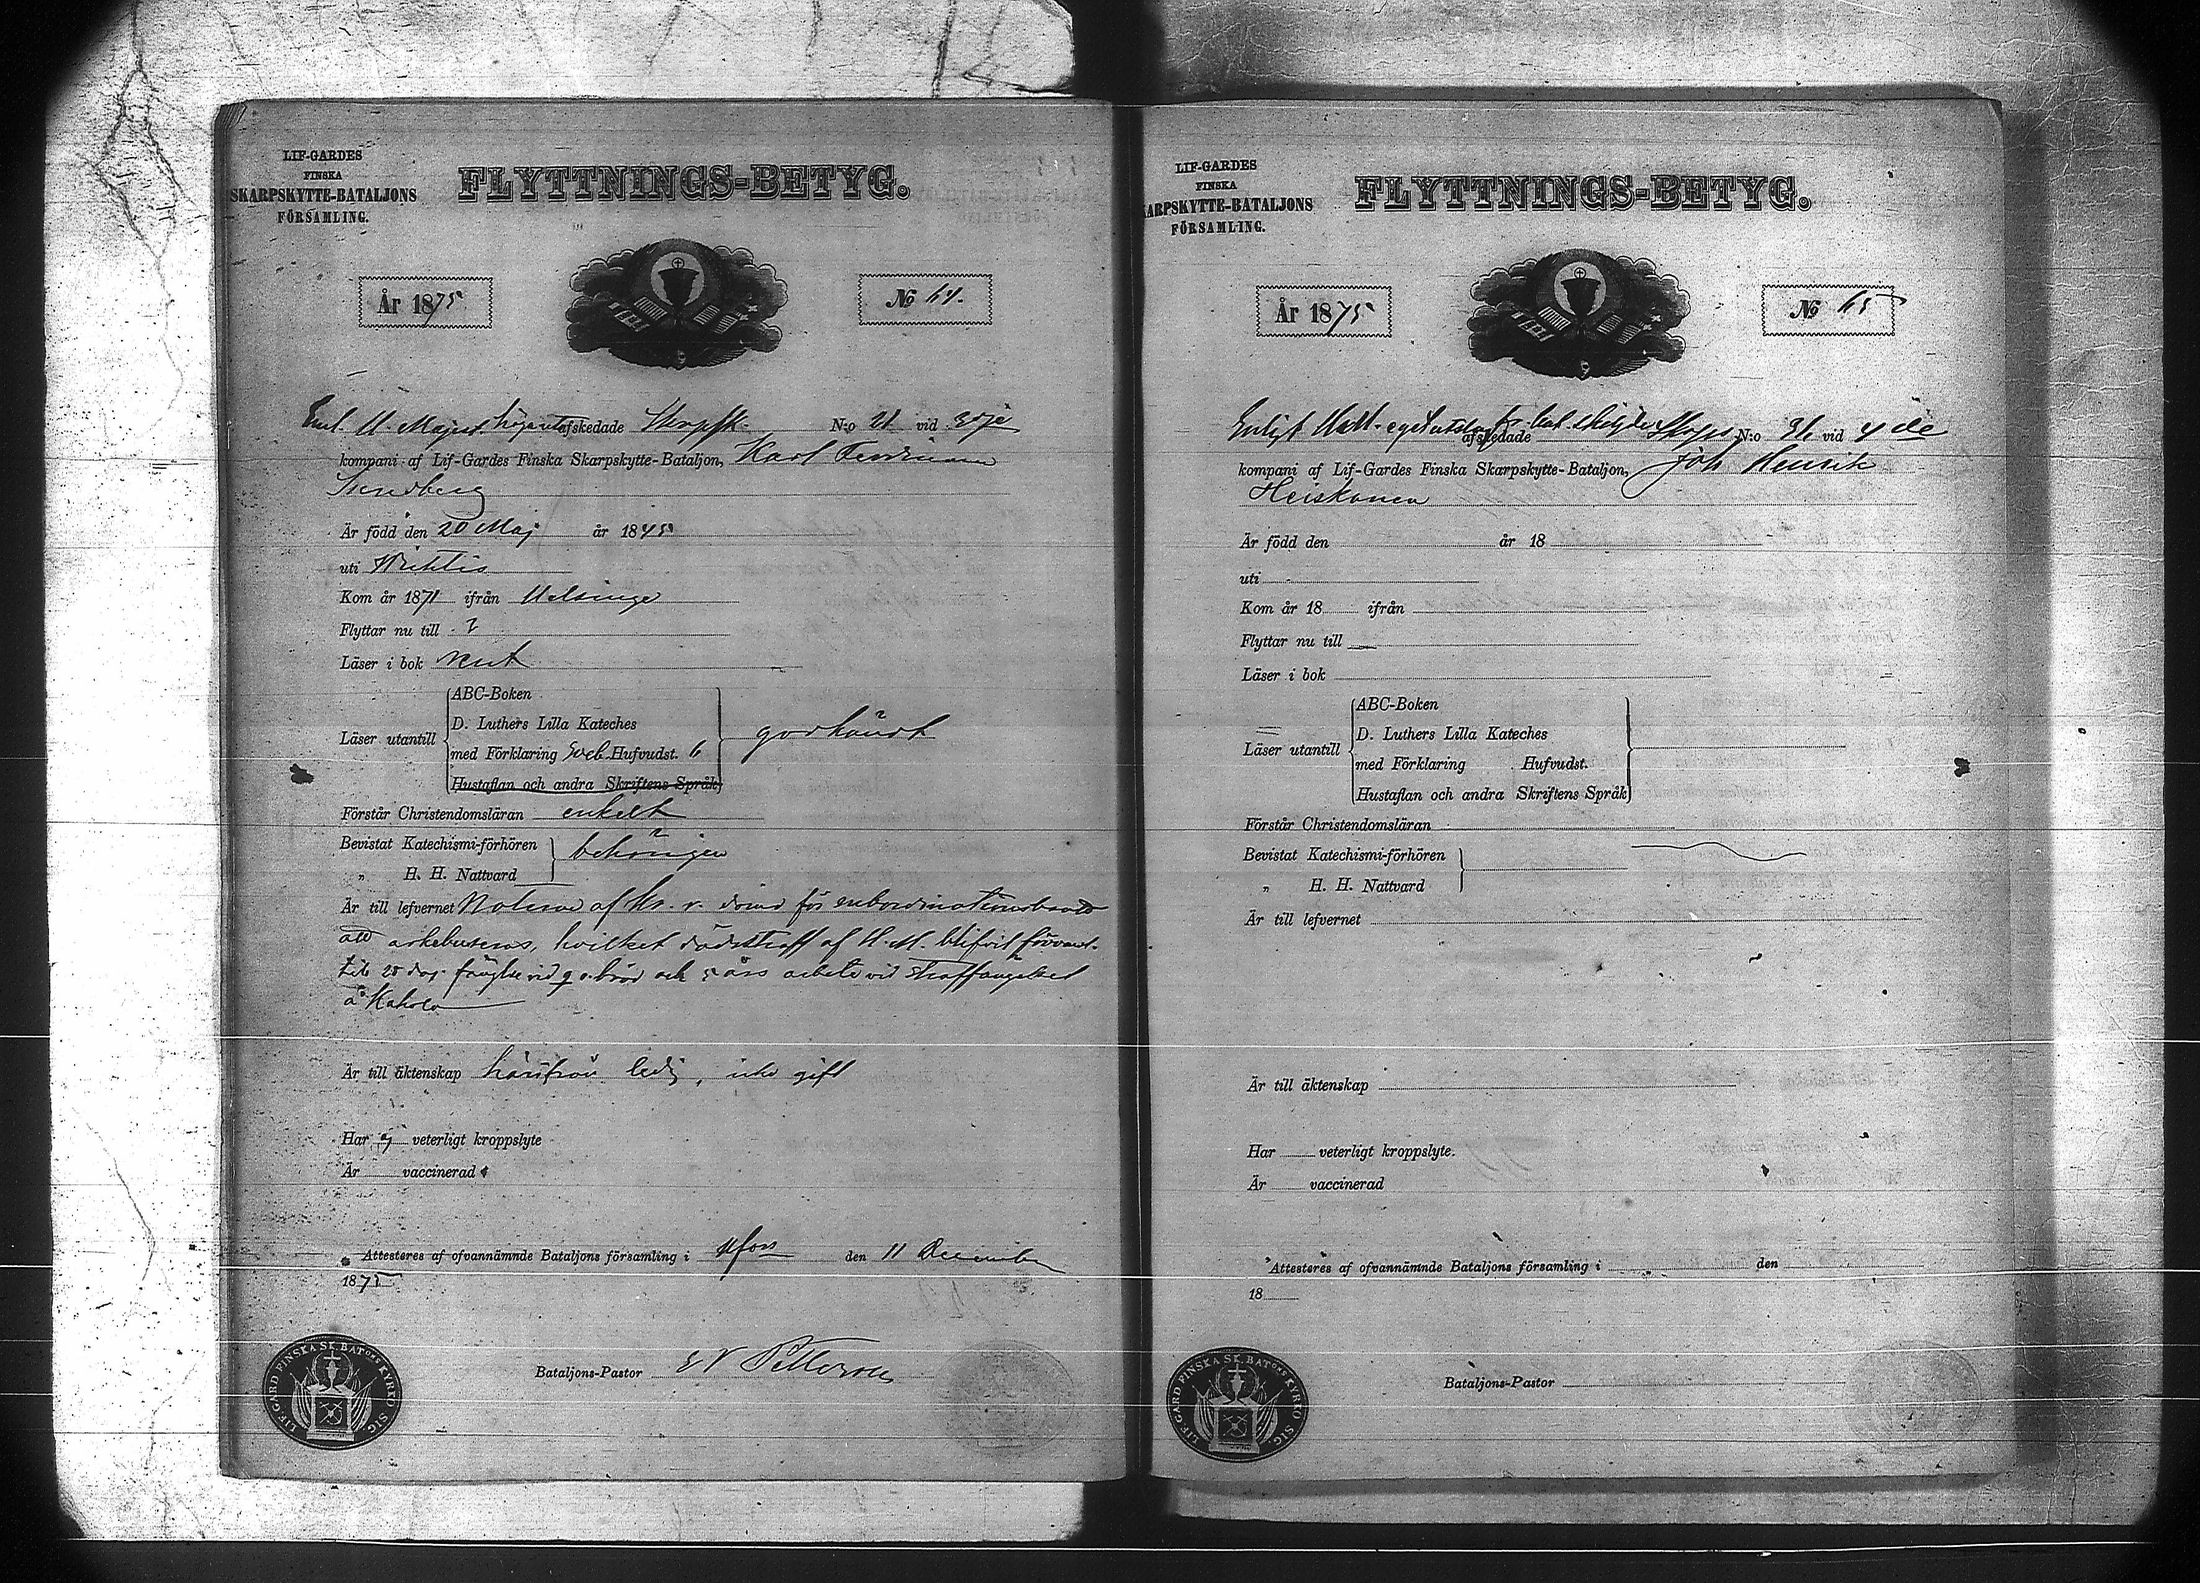 LIF-GARDES
FINSKA
SKARPSKYTTE-BATALJONS
FÖRSAMLING.
FLYTTNINGS-BETYG.
År 1875
№ 64.
Enl. H. Majest. afskedade Skarpsk. N:o 21 vid 3dje
kompani af Lif-Gardes Finska Skarpskytte-Bataljon, Karl Ferdinand
Sundberg
Är född den 20 Maj år 1845
uti Wichtis
Kom år 1871 ifrån Helsinge
Flyttar nu till ?
Läser i bok rent
Läser utantill
ABC-Boken
D. Luthers Lilla Kateches
med Förklaring Sveb. Hufvudst. 6
Hustaflan och andra Skriftens Språk
godkändt
Förstår Christendomsläran enkelt
Bevistat Katechismi-förhören
„ H. H. Nattvard
behörigen
Är till lefvernet af Kr. r. dömd för subordinationsbrott
att arkebuseras, hvilket dödsstraff af H. M. blifvit förvandl.
till 28 dag. fängelse vid och 5 års arbete vid straffängelset
å Kakola
Är till äktenskap ledig, icke gift
Har ej veterligt kroppslyte
Är vaccinerad
Attesteras af ofvannämnde Bataljons församling i Hfors den 11 December
1875
Bataljons-Pastor E V Petterson
LIF-GARD. FINSKA SK. BATONS KYRKO SIG.
LIF-GARDES
FINSKA
ARPSKYTTE-BATALJONS
FÖRSAMLING.
FLYTTNINGS-BETYG.
År 1875
№ 65
Enligt afskedade N:o 31 vid 4 de
kompani af Lif-Gardes Finska Skarpskytte-Bataljon, Joh Henrik
Heiskanen
Är född den år 18
uti
Kom år 18 ifrån
Flyttar nu till
Läser i bok
Läser utantill
ABC-Boken
D. Luthers Lilla Kateches
med Förklaring Hufvudst.
Hustaflan och andra Skriftens Språk
Förstår Christendomsläran
Bevistat Katechismi-förhören
„ H. H. Nattvard
Är till lefvernet
Är till äktenskap
Har veterligt kroppslyte.
Är vaccinerad
Attesteras af ofvannämnde Bataljons församling i den
18
Bataljons-Pastor
LIF-GARD. FINSKA SK. BATONS KYRKO SIG.